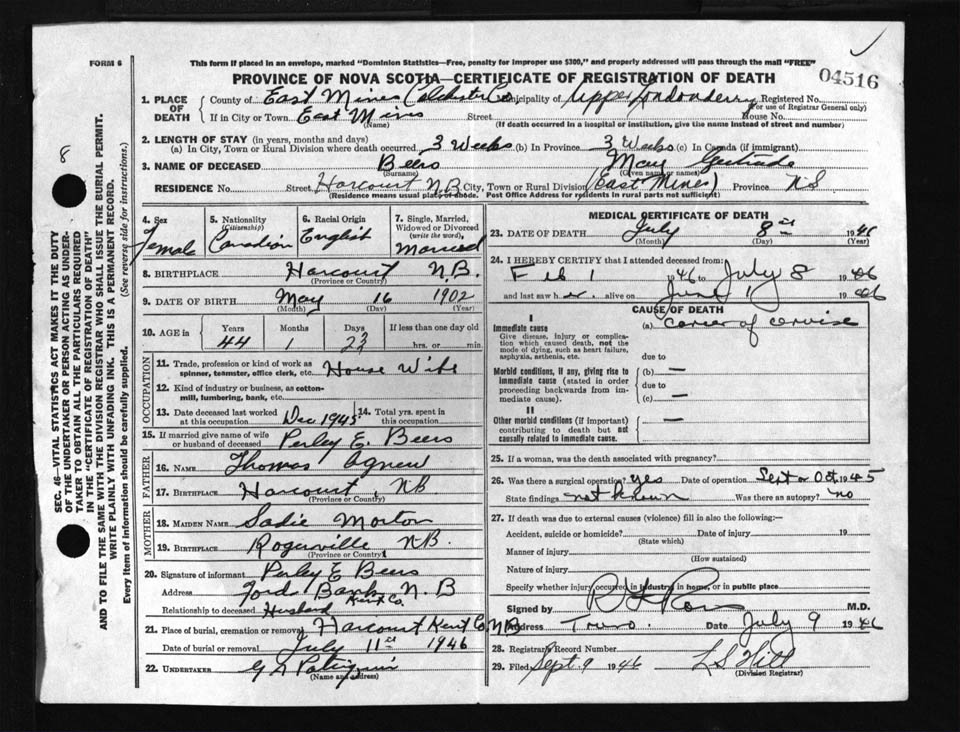 FORM 6
This form if placed in an envelope, marked "Dominion Statistics—Free, penalty for improper use $300," and properly addressed will pass through the mail "FREE"
PROVINCE OF NOVA SCOTIA—CERTIFICATE OF REGISTRATION OF DEATH
04516
1. PLACE OF DEATH
County of East Mines Colchester Co Municipality of Upper Londonderry Registered No.
(For use of Registrar General only)
If in City or Town East Mines Street House No.
(Name) (If death occurred in a hospital or institution, give name instead of street and number)
2. LENGTH OF STAY (in years, months and days)
(a) In City, Town or Rural Division where death occurred 3 Weeks (b) In Province 3 Weeks (c) In Canada (if immigrant)
3. NAME OF DECEASED Beers May Gertrude
(Surname) (Given name or names)
RESIDENCE No. Street Harcourt N.B City, Town or Rural Division (East Mines) Province N.S
(Residence means usual place of abode. Post Office Address for residents in rural parts not sufficient)
4. Sex Female
5. Nationality (Citizenship) Canadian
6. Racial Origin English
7. Single, Married, Widowed or Divorced (write the word) Married
8. BIRTHPLACE Harcourt N.B.
(Province or Country)
9. DATE OF BIRTH May 16 1902
(Month) (Day) (Year)
10. AGE in Years Months Days If less than one day old
44 1 23 hrs. or min.
OCCUPATION
11. Trade, profession or kind of work as spinner, teamster, office clerk, etc. House Wife
12. Kind of industry or business, as cotton-mill, lumbering, bank, etc.
13. Date deceased last worked at this occupation Dec 1945
14. Total yrs. spent in this occupation
15. If married give name of wife or husband of deceased Perley E. Beers
FATHER
16. NAME Thomas Agnew
17. BIRTHPLACE Harcourt, NB
(Province or Country)
MOTHER
18. MAIDEN NAME Sadie Morton
19. BIRTHPLACE Rogerville NB.
(Province or Country)
20. Signature of informant Perley E Beers
Address Ford Bank N.B
Kent Co.
Relationship to deceased Husband
21. Place of burial, cremation or removal Harcourt Kent Co. NB
Date of burial or removal July 11 1946
22. UNDERTAKER
(Name and address)
MEDICAL CERTIFICATE OF DEATH
23. DATE OF DEATH July 8 1946
(Month) (Day) (Year)
24. I HEREBY CERTIFY that I attended deceased from:
Feb 1 1946 to July 8 1946
and last saw her alive on June 1 1946
CAUSE OF DEATH
I
Immediate cause (a) cancer of cervix
Give disease, injury or complication which caused death, not the mode of dying, such as heart failure, asphyxia, asthenia, etc.
due to
Morbid conditions, if any, giving rise to immediate cause (stated in order proceeding backwards from immediate cause).
(b) —
due to
(c) —
II
Other morbid conditions (if important) contributing to death but not causally related to immediate cause. —
25. If a woman, was the death associated with pregnancy?
26. Was there a surgical operation? yes Date of operation Sept or Oct 1945
State findings not known Was there an autopsy? no
27. If death was due to external causes (violence) fill in also the following:—
Accident, suicide or homicide? Date of injury 19
(State which)
Manner of injury
(How sustained)
Nature of injury
Specify whether injury occurred in industry, in home, or in public place
Signed by M.D.
Address Truro. Date July 9 1946
28. Registrar's Record Number
29. Filed Sept. 9 1946 L S Hill
(Division Registrar)
8
SEC. 46—VITAL STATISTICS ACT MAKES IT THE DUTY
OF THE UNDERTAKER OR PERSON ACTING AS UNDER-
TAKER TO OBTAIN ALL THE PARTICULARS REQUIRED
IN THE "CERTIFICATE OF REGISTRATION OF DEATH"
AND TO FILE THE SAME WITH THE DIVISION REGISTRAR WHO SHALL ISSUE THE BURIAL PERMIT.
WRITE PLAINLY WITH UNFADING INK. THIS IS A PERMANENT RECORD.
Every item of information should be carefully supplied. (See reverse side for instructions.)